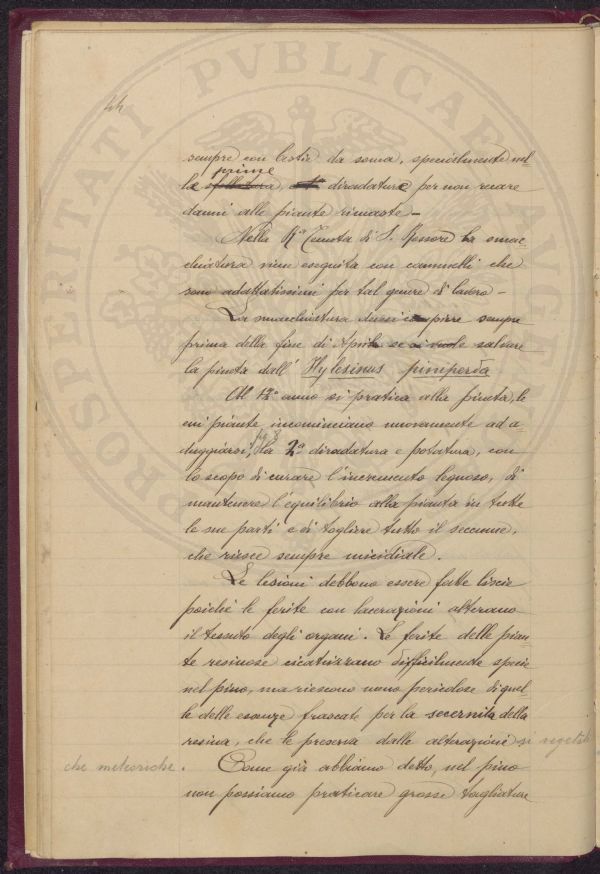 44
sempre con bestie da soma, specialmente nel-
prime
le sfollatura, diradature per non recare
danni alle piante rimaste -
Nella R.ª Tenuta di S. Rossore la smac-
chiatura vien eseguita con cammelli che
sono adattatissimi per tal genere di lavoro -
La smacchiatura devesi compirre sempre
prima della fine di Aprile se si vuole salvare
la pineta dall' Hylesinus piniperda
Al 12º anno si pratica alla pineta, le
cui piante incominciano nuovamente ad a
duggiarsi, la 2ª diradatura e potatura, con
lo scopo di curare l'incremento legnoso, di
mantenere l'equilibrio alla pianta in tutte
le sue parti e di togliere tutto il seccume,
che riesce sempre micidiale.
Le lesioni debbono essere fatte liscie
poichè le ferite con lacerazioni alterano
il tessuto degli organi. Le ferite delle pian
te resinose cicatrizzano difficilmente specie
nel pino, ma riescono meno pericolose di quel-
le delle essenze frascate per la secernita della
resina, che le preserva dalle alterazioni
che meteoriche.
Come già abbiamo detto, nel pino
non possiamo praticare grosse tagliature